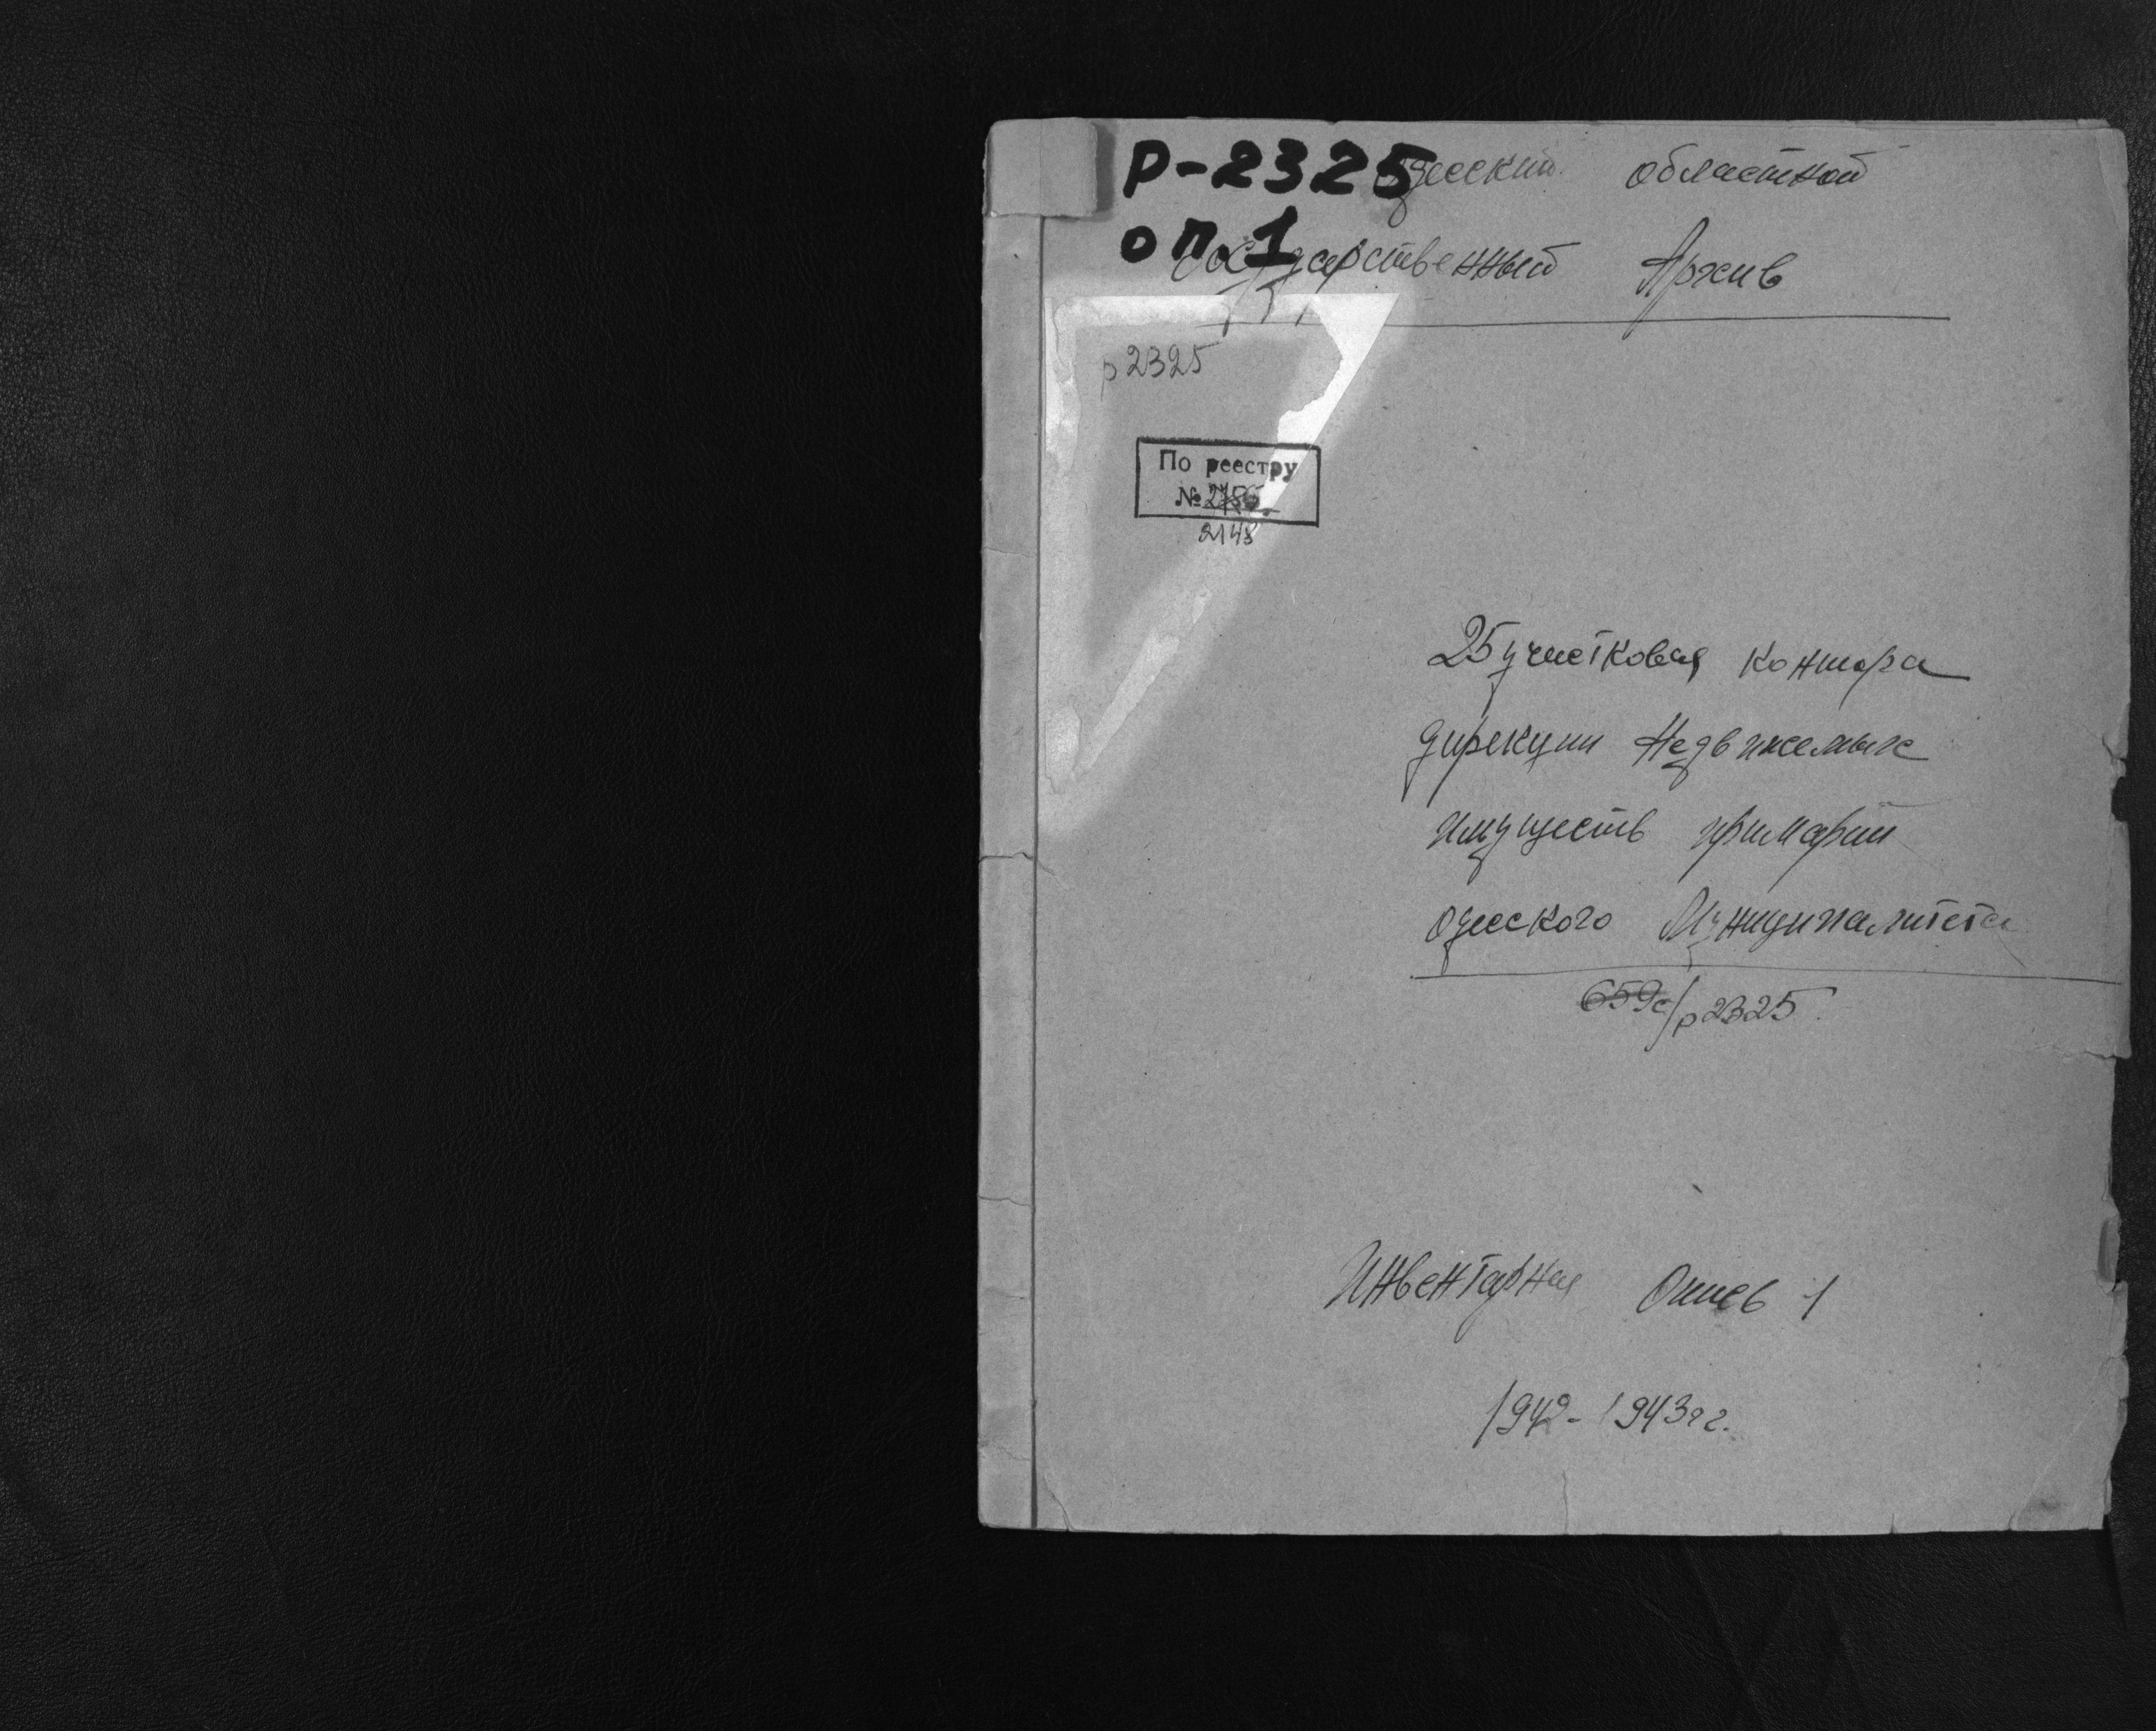 Р-2325
оп.1
Одесский областной
Государственный Архив
р2325
По реестру
№
2148
25 участковая контора
дирекции Недвижемых
имуществ примарии
одесского Муниципалитета
659с/р2325
Инвентарная Опись 1
1942-1943гг.